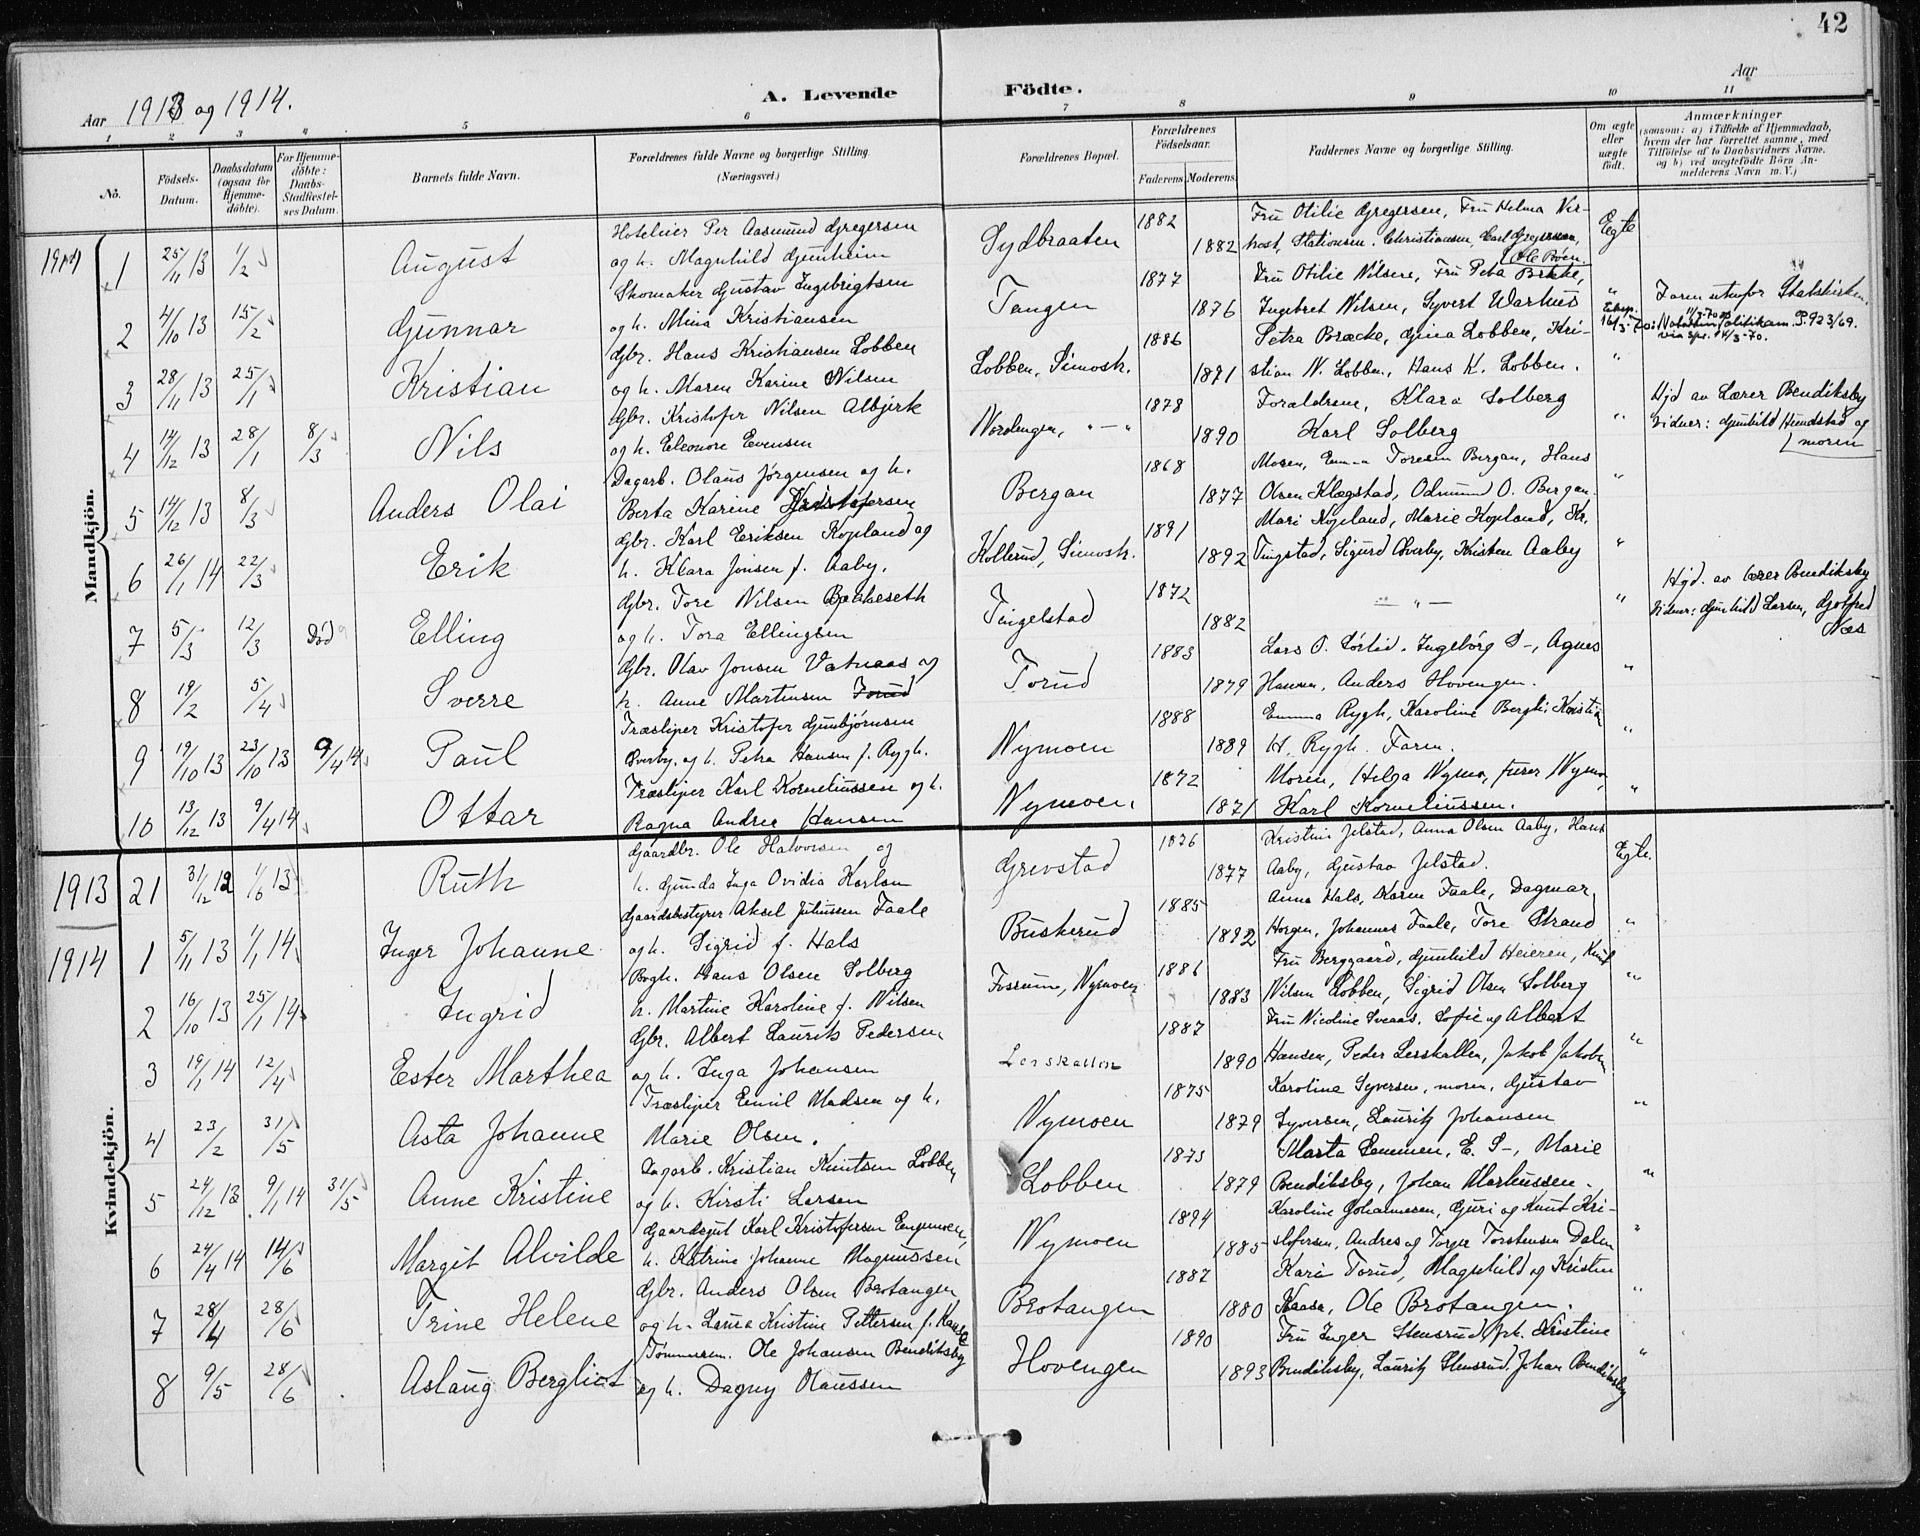 42
Aar 1913 og 1914.
A. Levende Födte.
Aar
1 2 3 4 5 6 7 8 9 10 11
No.
Födsels-Datum.
Daabsdatum (ogsaa for Hjemmedöbte).
For Hjemmedöbte: Daabs-Stadfæstelses Datum.
Barnets fulde Navn.
Forældrenes fulde Navne og borgerlige Stilling. (Næringsvei.)
Forældrenes Bopæl.
Forældrenes Födselsaar.
Faderens. Moderens.
Faddernes Navne og borgerlige Stilling.
Om ægte eller uægte födt.
Anmærkninger
(saasom: a) i Tilfælde af Hjemmedaab, hvem der har forrettet samme, med Tilföielse af to Daabsvidners Navne, og b) ved uægtefödte Börn Anmelderens Navn m. V.)
Mandkjön.
1914
1 25/11 13 1/2 August
Hotelier Per Aasmund Gregersen
og h. Magnhild Gunheim
Sydbraaten 1882 1882
Fru Otilie Gregersen, Fru Helma
Stationsm. Christiansen, Carl Gregersen,
Ole Böen.
Egte
2 4/10 13 15/2 Gunnar
Skomaker Gustav Ingebrigtsen
og h. Mina Kristiansen
Tangen 1877 1876
Fru Otilie Nilsen, Fru Petra Bække,
Ingebret Nilsen, Syvert Warhus
"
Faren utenfor Statskirken.
3 28/11 13 25/1 Kristian
Gbr. Hans Kristiansen Lobben
og h. Maren Karine Nilsen
Lobben, Simosh. 1886 1871
Petra Bræcke, Gina Lobben, Kri-
stian N. Lobben, Hans K. Lobben.
"
4 14/12 13 28/1 8/3 Nils
Gbr. Kristofer Nilsen Albjerk
og h. Eleonore Evensen
Nordengen, " — " 1878 1890
Forældrene, Klara Solberg
Karl Solberg
"
Hjd av Lærer Bendiksby
Vidner: Gunhild Hundstad og
moren
5 14/12 13 8/3 Anders Olai
Dagarb. Olaus Jörgensen og h.
Berta Karine Kristofersen
Bergan 1868 1877
Moren, Emma Toresen Bergan, Hans
Olsen Klægstad, Odmund O. Bergan.
"
6 26/1 14 22/3 Erik
Gbr. Karl Eriksen Kopland og
h. Klara Jonsen f. Aaby.
Kollerud, Simosh. 1891 1892
Mari Kopland, Marie Kopland, Kr.
Tingstad, Sigurd Överby, Kristen Aaby
"
7 5/3 12/3 Död Elling
Gbr. Tore Nilsen Bakkeseth
og h. Tora Ellingsen
Tingelstad 1872 1882
— " —
"
Hjd. av lærer Bendiksby
Vidner: Gunhild Larsen, Gotfred
Næs
8 19/2 5/4 Sverre
Gbr. Olav Jonsen Vatnaas og
h. Anne Martinsen Torud
Torud 1883 1879
Lars O. Sörlid. Ingeborg S—, Agnes
Hansen, Anders Hovengen.
"
9 19/10 13 23/10 13 9/4 14 Paul
Træsliper Kristofer Gunbjörnsen
Överby, og h. Petra Hansen f. Rygh.
Nymoen 1888 1889
Emma Rygh, Karoline Bergli, Kristian
H. Rygh. Faren.
"
10 13/12 13 9/4 14 Ottar
Træsliper Karl Korneliussen og h.
Ragna Andrea Hansen
Nymoen. 1872 1871
Moren, Helga Nymo, furer Nymo,
Karl Korneliussen.
"
Kvindekjön.
1913 21 31/12 12 1/6 13 Ruth
Gaardbr. Ole Halvorsen og
h. Gunda Inga Ovidia Karlsen
Grevstad 1876 1877
Kristine Jelstad, Anna Olsen Aaby, Hans
Aaby, Gustav Jelstad.
Egte.
1914 1 5/11 13 1/1 14 Inger Johanne
Gaardsbestyrer Aksel Juliussen Faale
og h. Sigrid f. Hals
Buskerud 1885 1892
Anna Hals, Karen Faale, Dagmar
Horgen, Johannes Faale, Tore Strand
"
2 16/10 13 25/1 14 Ingrid
Bogh. Hans Olsen Solberg
h. Martine Karoline f. Nilsen
Fosrume, Nymoen 1886 1883
Fru Berggaard, Gunhild Heieren, Knut
Nilsen Lobben, Sigrid Olsen Solberg
"
3 19/1 14 12/4 Ester Marthea
Gbr. Albert Laurits Pedersen
og h. Inga Johansen
Lerskallen 1887 1890
Fru Nicoline Sveaas, Sofie og Albert
Hansen, Peder Lerskallen, Jakob Jakobsen
"
4 23/2 31/5 Asta Johanne
Træsliper Emil Madsen og h.
Marie Olsen.
Nymoen 1875 1879
Karoline Syversen, moren, Gustav
Syversen, Lauritz Johansen
"
5 24/12 13 9/1 14 31/5 Anne Kristine
Dagarb. Kristian Knutsen Lobben
og h. Kirsti Larsen
Lobben 1873 1879
Marta Lemmen, E. S—, Marie
Bendiksby, Johan Markussen.
"
6 24/4 14 14/6 Margit Alvilde
Gaardsgut Karl Kristofersen Engemoen,
h. Katrine Johanne Magnussen
Nymoen 1894 1885
Karoline Johannesen, Guri og Knut Kri-
stofersen, Andres og Torger Torstensen Dalen
"
7 28/4 28/6 Trine Helene
Gbr. Anders Olsen Brotangen
og h. Laura Kristine Pettersen f. Kaasa
Brotangen 1887 1880
Kari Torud, Magnhild og Kristen
Kaasa, Ole Brotangen.
"
8 9/5 28/6 Aslaug Bergliot
Tömmerm. Ole Johansen Bendiksby
og h. Dagny Olaussen
Hovengen 1890 1893
Fru Inger Stensrud, frk. Kristine
Bendiksby, Lauritz Stensrud, Johan Bendiksby
"